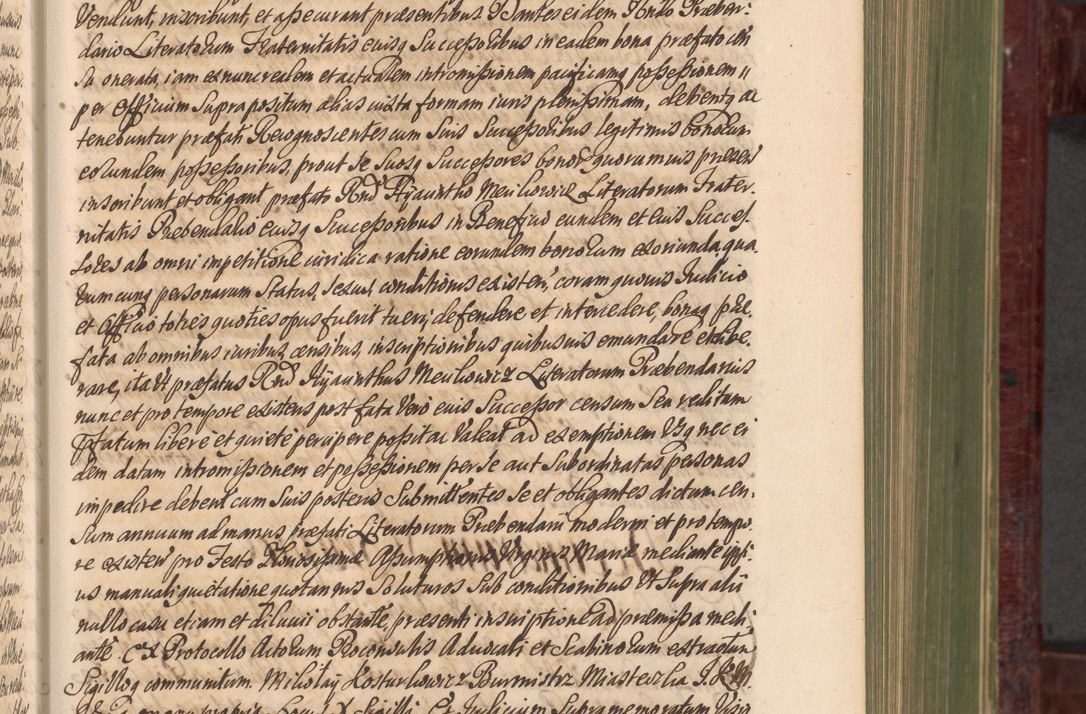 Vendunt, inscribunt, et assecurant præsentibus Dantes eidem Rndo Præben¬
dario Literatorum Fraternitatis eiusq Successoribus in eadem bona præfato cen
su onerata, iam ex nunc realem et actualem intromissionem pacificamq possessionem
per Officium Supra positum alias iuxta formam iuris plenissimam, debentq ac
tenebuntur præfati Recognoscentes cum Suis Successoribus legitimis bonorum
eorundem possessoribus, prout se Suosq Successores bonor quorumuis præsen
inscribunt et obligant præfato Rnd Hyacintho Meuchowicz Literatorum Frater¬
nitatis Præbendario eiusq Successoribus in Beneficio eundem et eius Succes¬
sores ab omni impetitione iuridica ratione eorundem bonorum exoriunda, qua
rumcunq personarum Status, Sexus, conditionis existen, coram quouis Iudicio
et Officio toties quoties opus fuerit tueri, defendere et intercedere, bonaq præ¬
fata ab omnibus iuribus, censibus, inscriptionibus quibusuis emundare et libe¬
rare, ita vt præfatus Rnd Hyacinthus Meuchowicz Literatorum Præbendarius
nunc et pro tempore existens post fata Vero eius Successor censum Seu reditam
Pfatum libere et quiete percipere possit ac Valeat ad exemptionem Vsq nec ei
dem datam intromissionem et possessionem per se aut Subordinatas personas
impedire debent cum Suis posteris Submittentes se et obligantes dictum cen¬
sum annuum ad manus præfati Literatorum Præbendarii moderni et pro tempo¬
re existen pro Festo Assumptionis Virginis Mariæ mediante ipsi¬
us manuali quietatione quotannis Soluturos Sub conditionibus Vt Supra alii
nullo casu etiam et diluuii obstante, præsenti inscriptione ad præmissa medi¬
ante. Ex Protocollo Actorum Proconsulis Aduocati et Scabinorum extractum
Sigilloq communitum. Mikołay Kosturkiewicz Burmistrz Miasteczka
manu propria Locus Sigilli Iudicium Supra memoratum